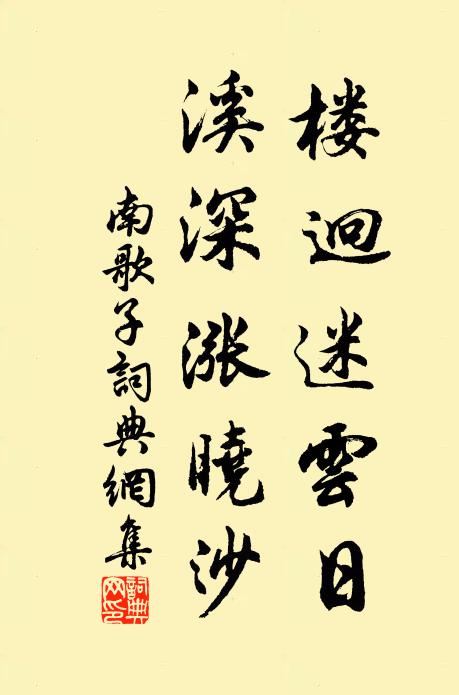 楼迥迷雲日
溪深漲曉沙
南歌子詞典網集
詞典網印